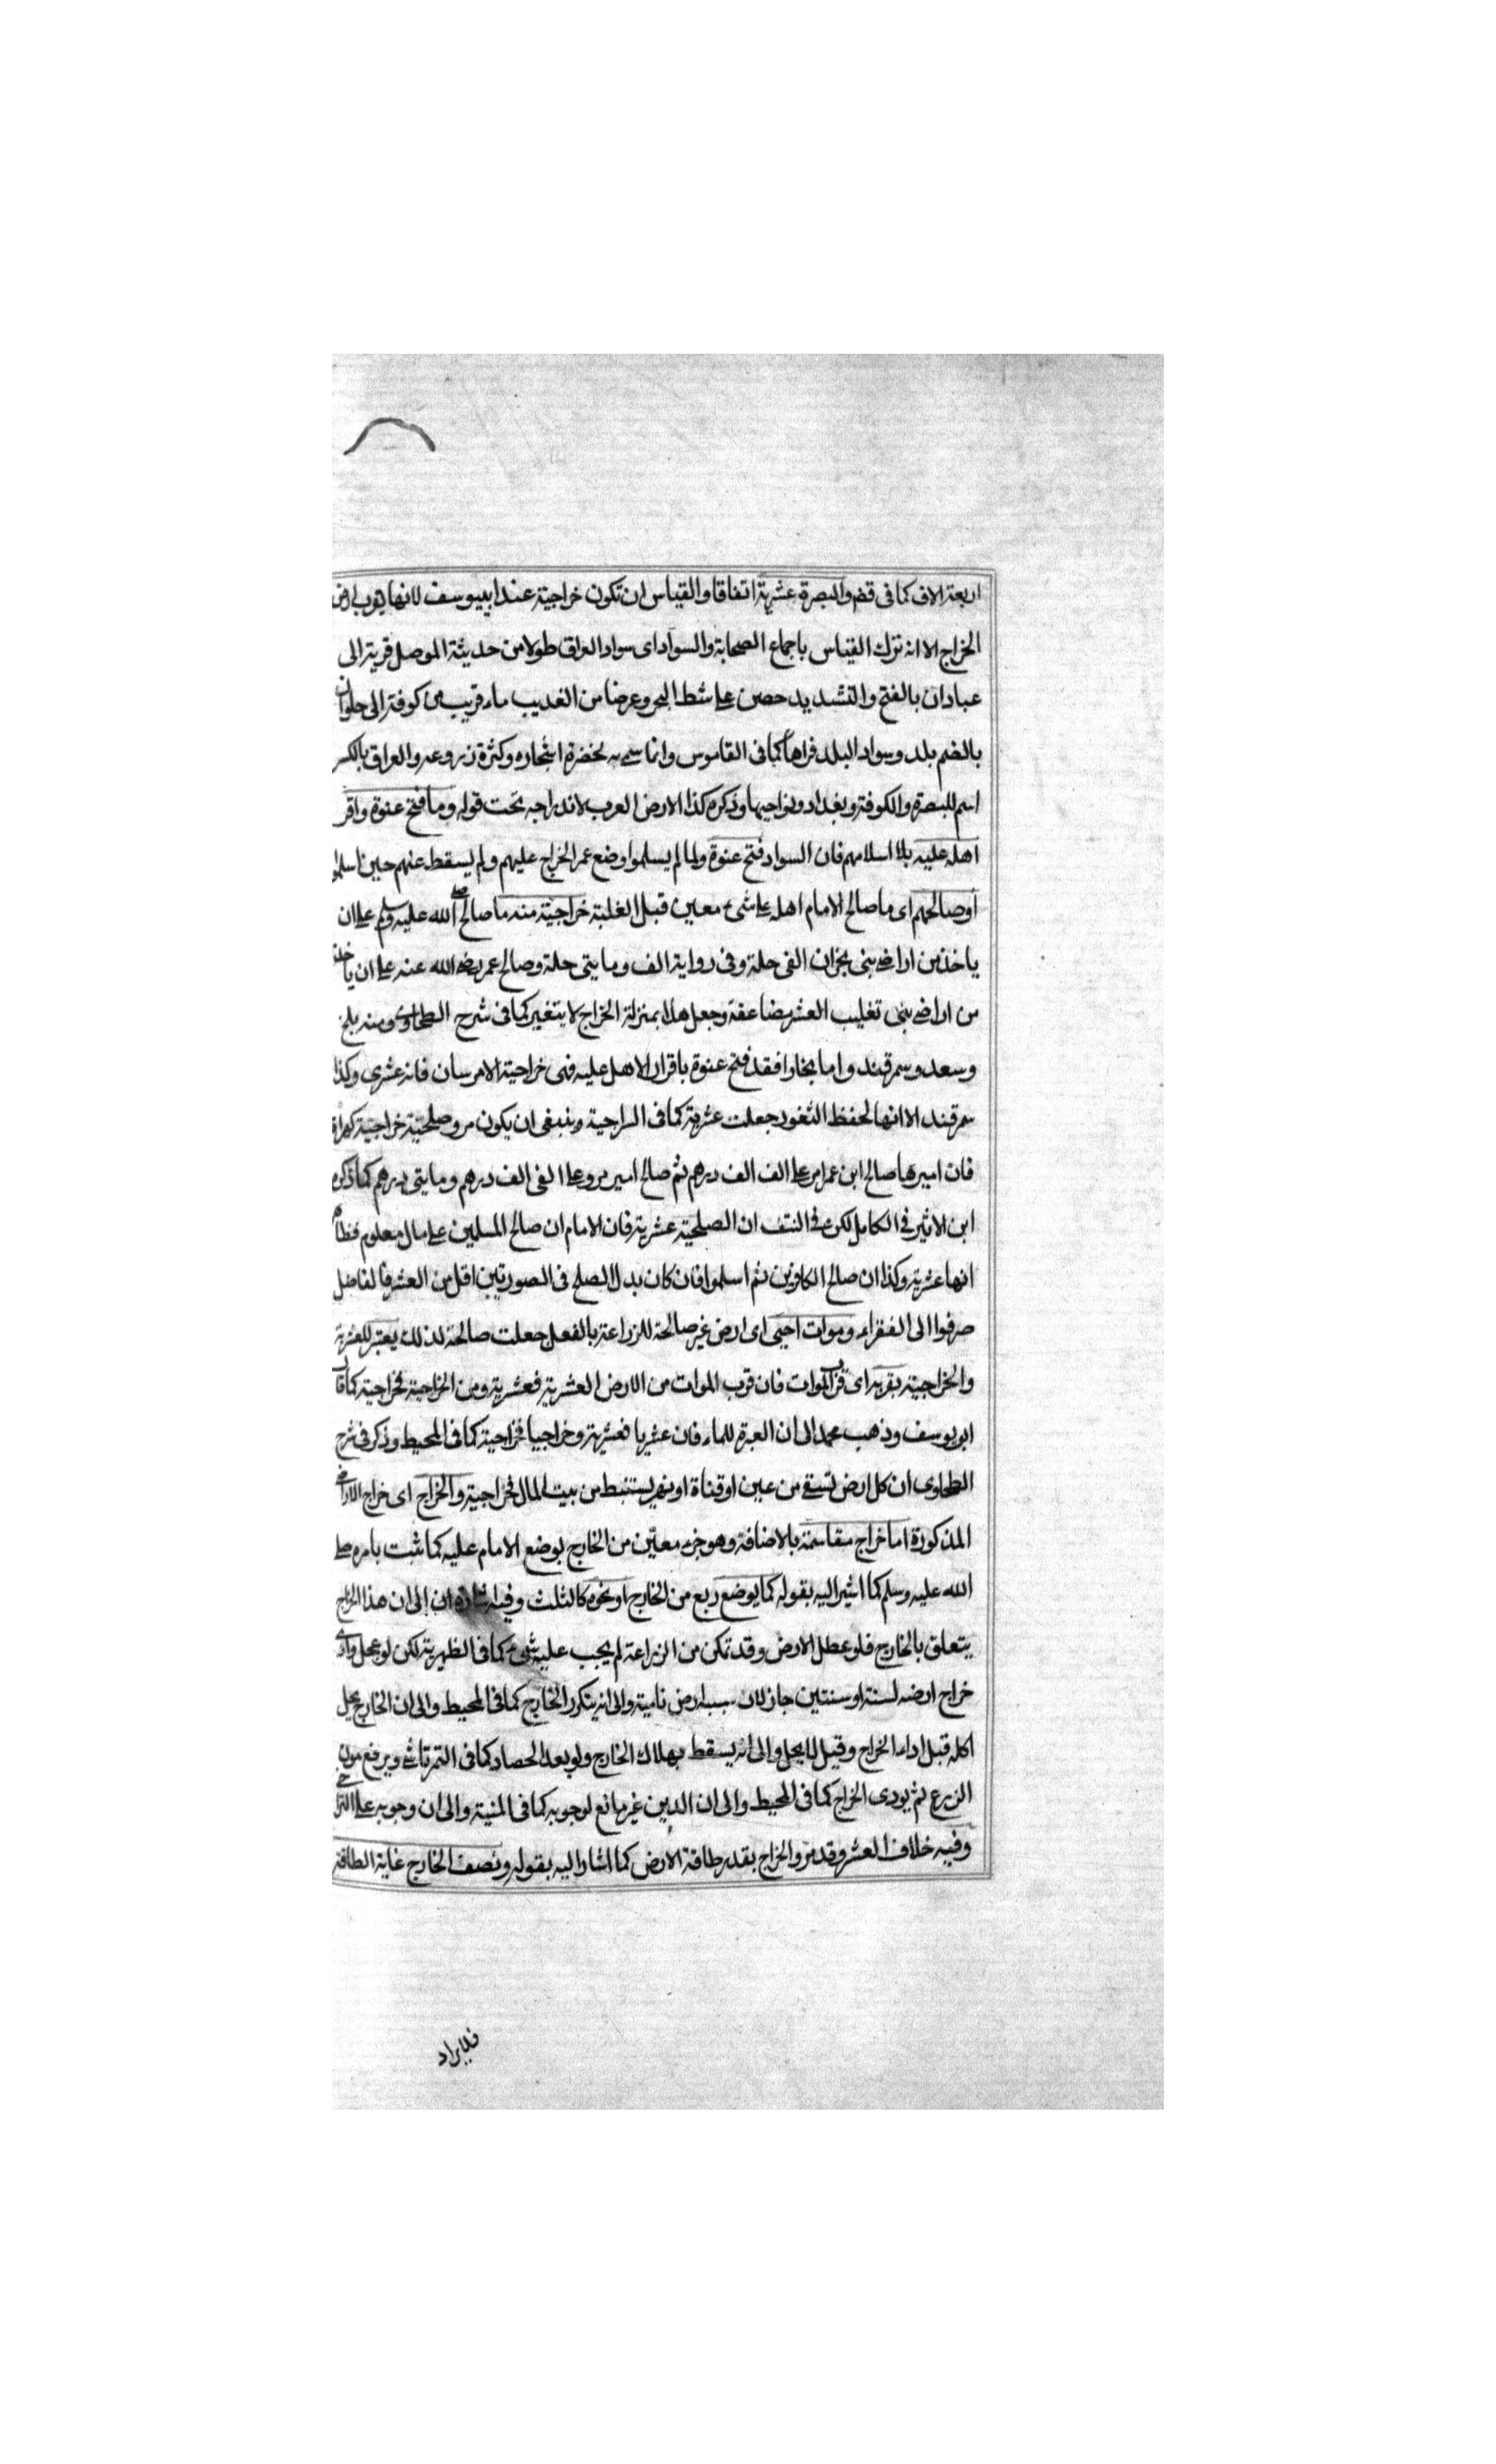 اربعة الاف كما فى قضم والبصرة عشرية اتفاقا والقياس ان تكون خراجية عند ابيوسف لانها بقرب ارض
الخراج الا انه ترك القياس باجماع الصحابة والسواد اى سواد العراق طولا من حديثة الموصل قرية الى
عبادان بالفتح والتشديد حصن على شط البحر وعرضا من الغديب ماء قريب من كوفة الى حلوان
بالضم بلد وسواد البلد قراها كما فى القاموس وانما سمى به لخضرة اشجاره وكثرة زروعه والعراق بالكسر
اسم للبصرة والكوفة وبغداد ونواحيها وذكره كذا الارض العرب لاندراجه تحت قوله وما فتح عنوة واقر
اهله عليه بلا اسلامهم فان السواد فتح عنوة ولما لم يسلموا وضع عمر الخراج عليهم ولم يسقط عنهم حين اسلموا
او صالحهم اى ما صالح الامام اهله على شىء معين قبل الغلبة خراجية منه ما صالح صلى الله عليه وسلم على ان
ياخذ من اراضى بنى نجران الفى حلة وفى رواية الف ومايتى حلة وصالح عمر رضى الله عنه على ان ياخذ
من اراضى بنى تغليب العشر مضاعفة وجعل هذا بمنزلة الخراج لا يتغير كما فى شرح الطحاوى ومنه بلخ
وسعد وسمرقند واما بخارا فقد فتح عنوة باقرار الاهل عليه فهى خراجية الامرسان فانه عشرى وكذا
سمرقند الا انها لحفظ الثغور جعلت عشرية كما فى السراجية وينبغى ان يكون مرو صلحية خراجية كهراة
فان اميرها صالح ابن عمر على الف الف درهم ثم صالح امير مرو على الفى الف درهم ومايتى درهم كما ذكره
ابن الاثير فى الكامل لكن فى النتف ان الصلحية عشرية فان الامام ان صالح المسلمين على مال معلوم فظاهر
انها عشرية وكذا ان صالح الكافرين ثم اسلموا فان كان بدل الصلح فى الصورتين اقل من العشر فالفاضل
صرفوا الى الفقراء وموات احيى اى ارض غير صالحة للزراعة بالفعل جعلت صالحة لذلك يعتبر للعشرية
والخراجية بقربه اى قرب الموات فان قرب الموات من الارض العشرية فعشرية ومن الخراجية فخراجية كما قال
ابو يوسف وذهب محمد الى ان العبرة للماء فان عشريا فعشرية وخراجيا فخراجية كما فى المحيط وذكر فى شرح
الطحاوى ان كل ارض تسقى من عين او قناة او نهر يستنبط من بيت المال فخراجية والخراج اى خراج الاراضى
المذكورة اما خراج مقاسمة بالاضافة وهو جزء معين من الخارج بوضع الامام عليه كما ثبت بامره صلى
الله عليه وسلم كما اشير اليه بقوله كما يوضع ربع من الخارج او نحوه كالثلث وفيه اشارة ان إلى ان هذا الخراج
يتعلق بالخارج فلو عطل الارض وقد تمكن من الزراعة لم يجب عليه شىء كما فى الظهيرية لكن لو عجل وادى
خراج ارضه لسنة او سنتين جاز لان سببه ارض نامية والى انه يتكرر الخارج كما فى المحيط والى ان الخارج يحل
اكله قبل اداء الخراج وقيل لا يحل والى انه يسقط بهلاك الخارج ولو بعد الحصاد كما فى التمرتاشى ويرفع مون
الزرع ثم يودى الخراج كما فى المحيط والى ان الدين غير مانع لوجوبه كما فى المنية والى ان وجوبه على التراخى
وفيه خلاف العشر وقدر والخراج بقدر طاقة الارض كما اشار اليه بقوله ونصف الخارج غاية الطاقة
فلا يراد